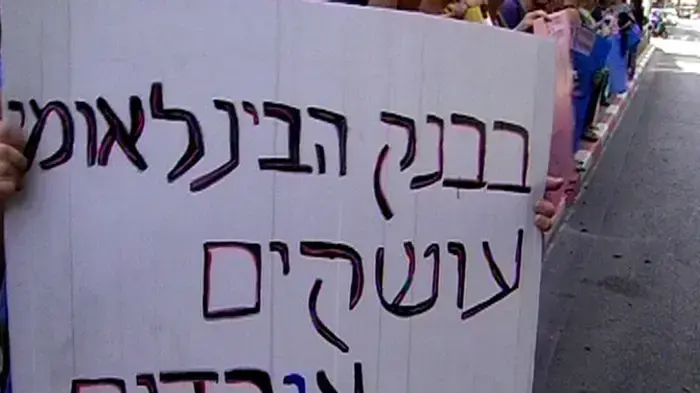 בבנק הבינלאומי
עושקים